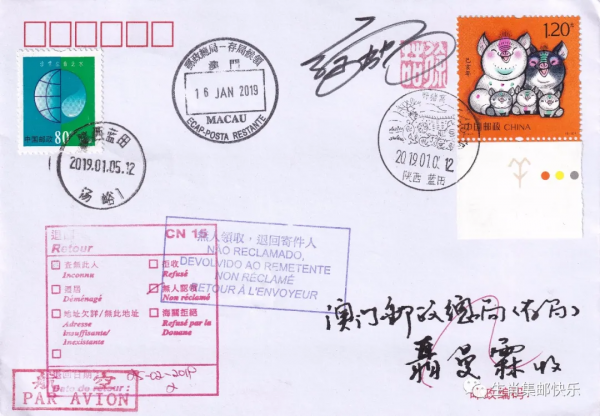 中国邮政 80
陕西蓝田
2019.01.05.12
汤峪1
郵政總局-存局候領
澳門
16 JAN 2019
MACAU
ECAP-POSTA RESTANTE
1.20元
己亥年
中国邮政 CHINA
2019.01.05.12
陕西 蓝田
退回 CN 15
Retour
查無此人
Inconnu
拒收
Refusé
遷居
Déménagé
無人認領
Non réclamé
地址欠詳/無此地址
Adresse
insuffisante/
Inexistante
海關拒絕
Refusé par la
Douane
退回日期
Date de retour :
05-02-2019
航空
PAR AVION
無人領取,退回寄件人
NÃO RECLAMADO,
DEVOLVIDO AO REMETENTE
NON RÉCLAMÉ
RETOUR À L'ENVOYEUR
澳门邮政总局(存局)
聶曼霖 收
邮政编码
华尚集邮快乐